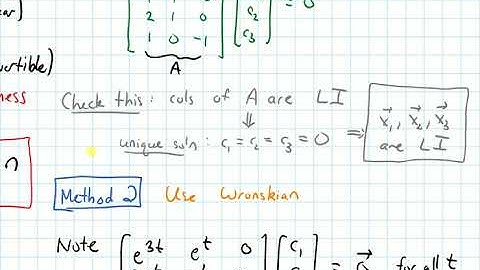 ear)
2 1 0 c₂ = 0
1 0 -1 c₃
A
ertible)
ness
Check this : cols of A are LI
⇓
unique sol'n : c₁ = c₂ = c₃ = 0 ⇒
x⃗₁, x⃗₂, x⃗₃
are LI
n
Method 2 Use Wronskian
Note [e^{3t} e^t 0] [c₁ = 0⃗ for all t